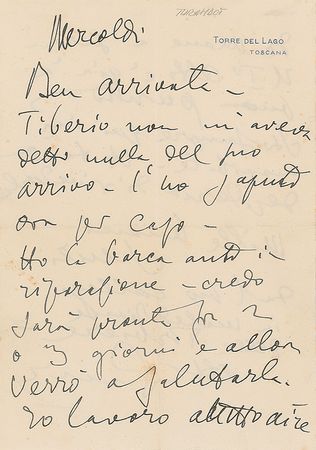 TURANDOT
TORRE DEL LAGO
TOSCANA
Mercoldì
Ben arrivata -
Tiberio non m'aveva
detto nulla del suo
arrivo - l'ho saputo
ora per caso -
Ho la barca auto in
riparazione - credo
sarà pronta fra 2
o 3 giorni e allora
verrò a salutarla.
Io lavoro